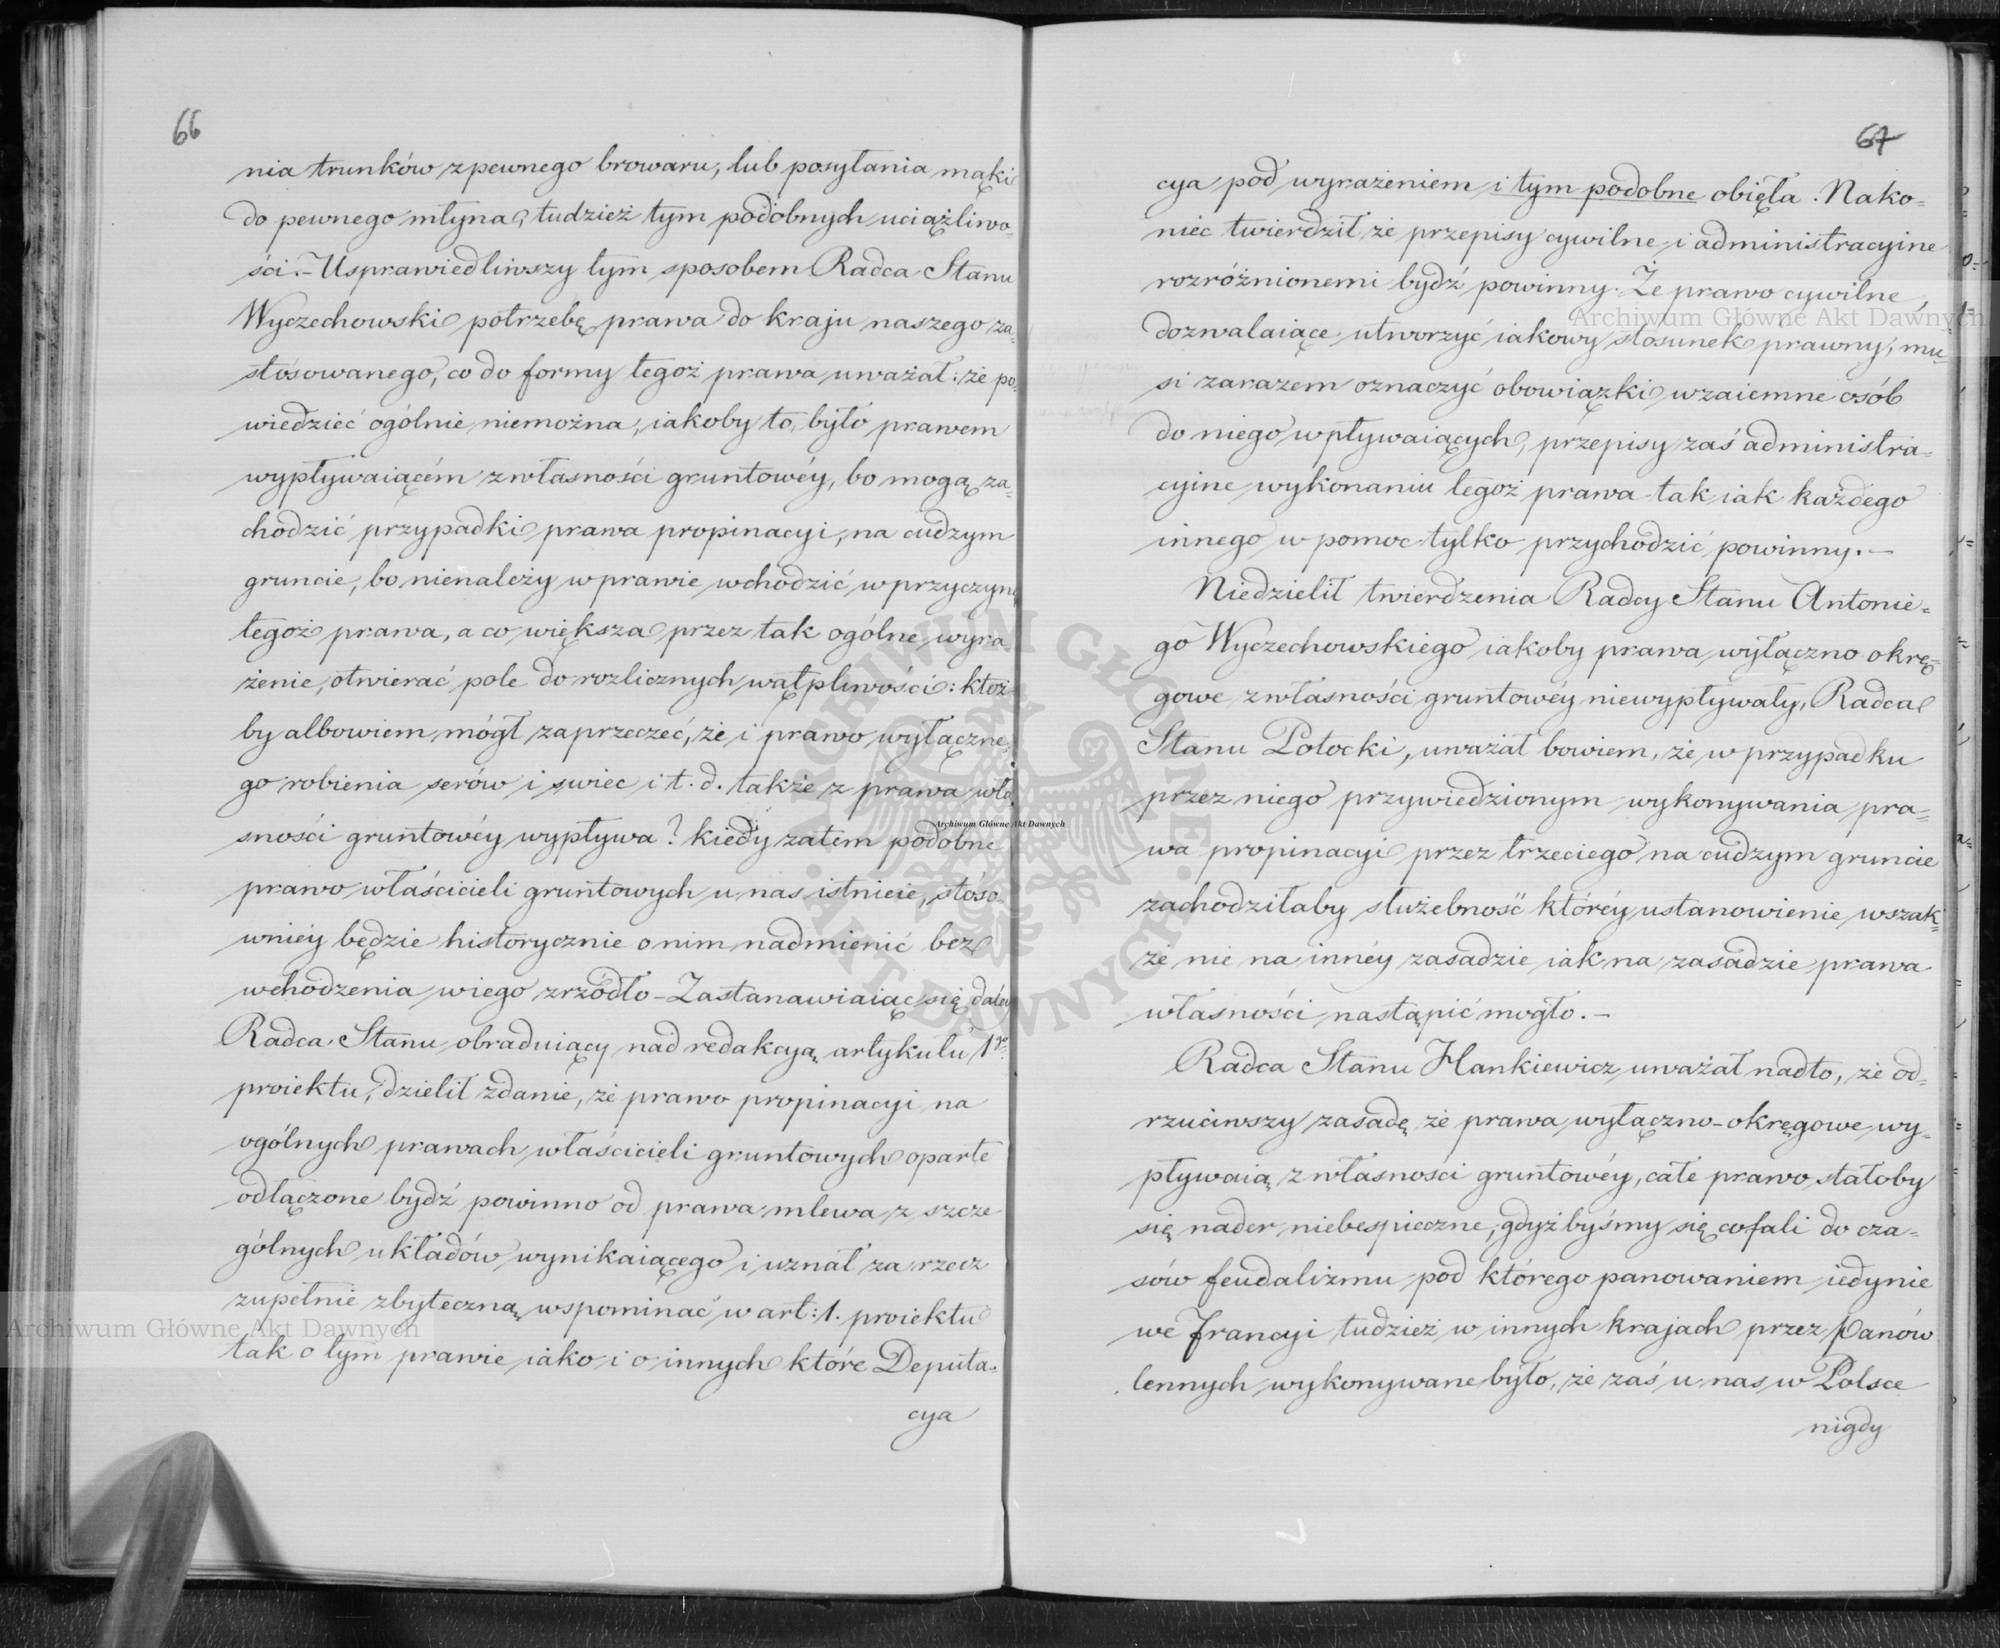 66
nia trunków z pewnego browaru, lub posyłania mąki
do pewnego młyna, tudzież tym podobnych uciążliwo-
ści. – Usprawiedliwszy tym sposobem Radca Stanu
Wyczechowski potrzebę prawa do kraju naszego za-
stósowanego, co do formy tegoż prawa uważał: że po-
wiedzieć ogólnie niemożna, iakoby to było prawem
wypływaiącém z własności gruntowéy, bo mogą za-
chodzić przypadki prawa propinacyi, na cudzym
gruncie, bo nienależy w prawie wchodzić w przyczynę
tegoż prawa, a co większa przez tak ogólne wyra-
żenie, otwierać pole do rozlicznych wątpliwości: któż
by albowiem mógł zaprzeczeć, że i prawo wyłączne-
go robienia serów i swiec i t. d. także z prawa wła-
sności gruntowéy wypływa? kiedy zatem podobne
prawo właścicieli gruntowych u nas istnieie, stóso-
wniéy będzie historycznie o nim nadmienić bez
wchodzenia w iego zrzódło – Zastanawiaiąc się daléy
Radca Stanu obraduiący nad redakcyą artykułu 1go
proiektu, dzielił zdanie, że prawo propinacyi na
ogólnych prawach właścicieli gruntowych oparte
odłączone bydź powinno od prawa mlewa z szcze
gólnych układów wynikaiącego i uznał za rzecz
zupełnie zbyteczną wspominać w art: 1. proiektu
tak o tym prawie iako i o innych które Deputa-
cya
67
cya pod wyrażeniem i tym podobne obięła. Nako-
niec twierdził że przepisy cywilne i administracyine
rozróżnionemi bydź powinny. Że prawo cywilne,
dozwalaiące utworzyć iakowy stosunek prawny, mu-
si zarazem oznaczyć obowiązki wzaiemne osób
do niego wpływaiących, przepisy zaś administra-
cyine wykonaniu tegoż prawa tak iak każdego
innego w pomoc tylko przychodzić powinny. –
Niedzielił twierdzenia Radcy Stanu Antonie-
go Wyczechowskiego iakoby prawa wyłączno okrę-
gowe z własności gruntowéy niewypływały, Radca
Stanu Potocki, uważał bowiem, że w przypadku
przez niego przywiedzionym wykonywania pra-
wa propinacyi przez trzeciego na cudzym gruncie
zachodziłaby służebność któréy ustanowienie wszak-
że nie na innéy zasadzie iak na zasadzie prawa
własności nastąpić mogło. –
Radca Stanu Hankiewicz uważał nadto, że od-
rzuciwszy zasadę że prawa wyłączno-okręgowe wy-
pływaią z własności gruntowéy, całe prawo stałoby
się nader niebespieczne, gdyż byśmy się cofali do cza-
sów feudalizmu pod którego panowaniem iedynie
we Francyi tudzież w innych krajach przez panów
lennych wykonywane było, że zaś u nas w Polsce
nigdy
Archiwum Główne Akt Dawnych
Archiwum Główne Akt Dawnych
Archiwum Główne Akt Dawnych
ARCHIWUM GŁÓWNE AKT DAWNYCH